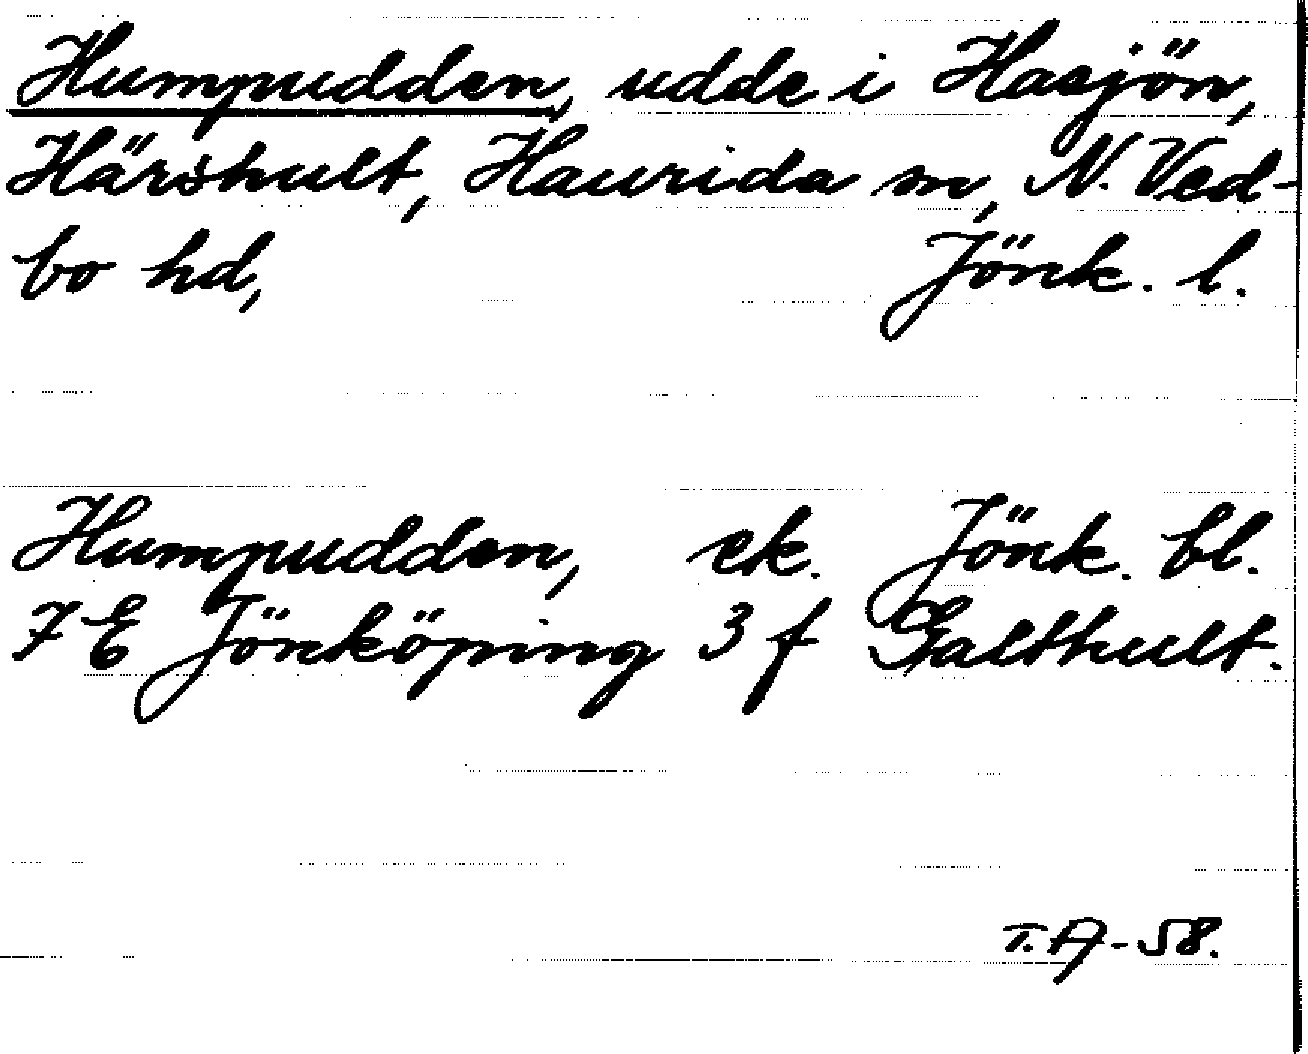 Humpudden, udde i Hasjön,
Härshult, Haurida sn, N. Ved-
bo hd, Jönk. l.
Humpudden, ek. Jönk. bl.
7 E Jönköping 3 f Galthult.
T. A - 58.